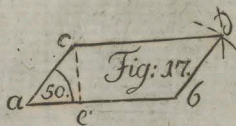 c D
Fig: 17.
a 50. e b